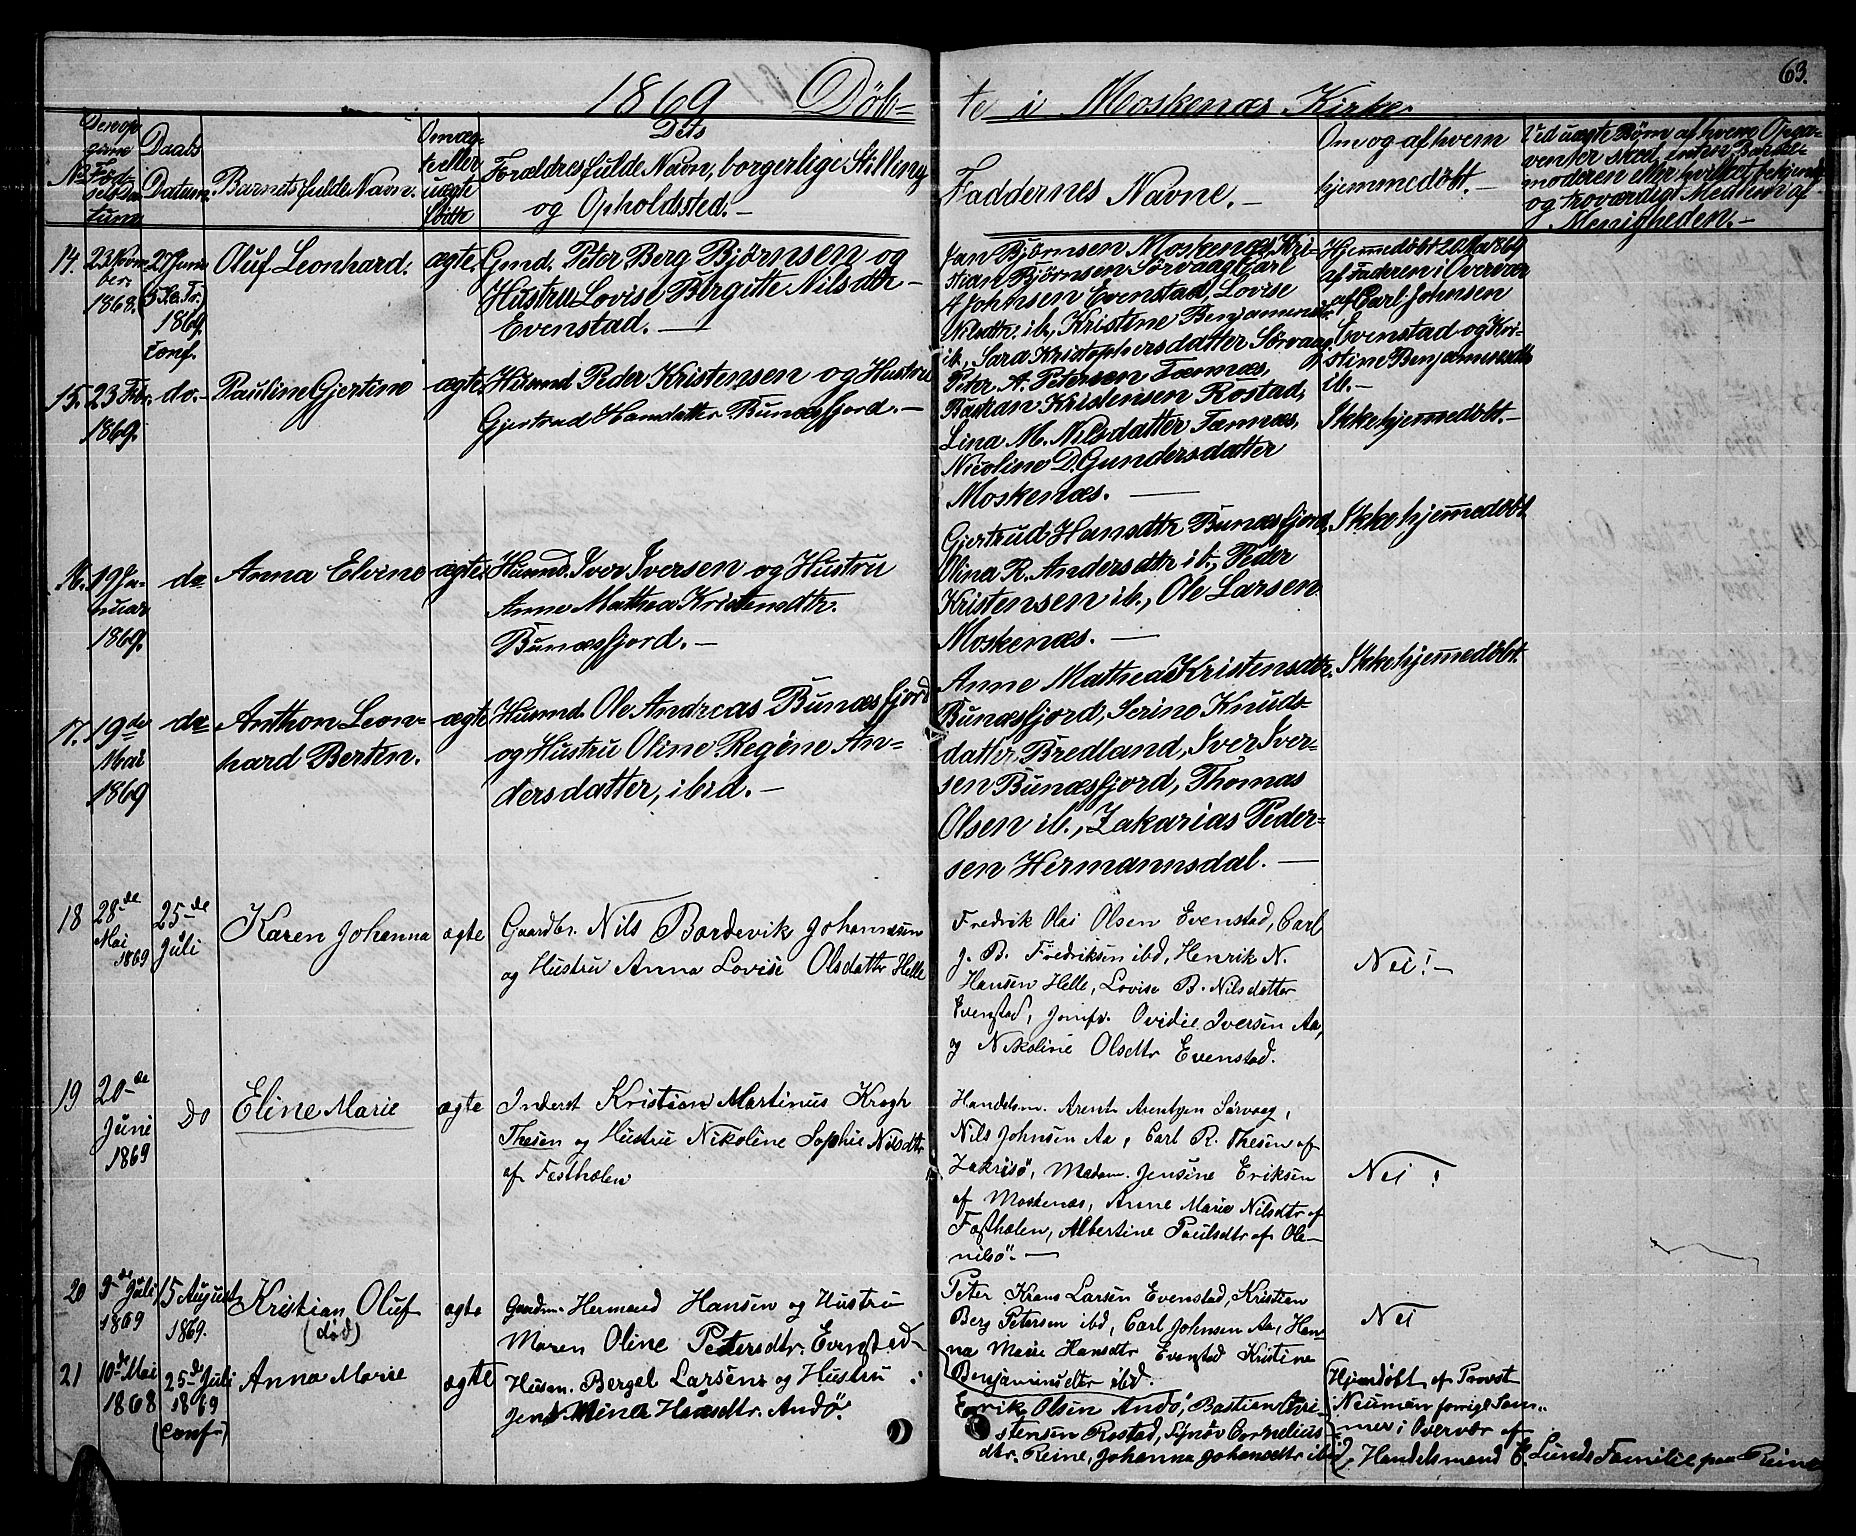 63.
1869 Døb-
te i Moskenæs Kirke.
No
Daabs
Datum.
Barnets fulde Navn.
Omæg-
te eller
uægte
Dets
Forældres fulde Navn, borgerlige Stilling
og Opholdssted.-
Faddernes Navne.-
Om og af hvem
hjemmedøbt.-
Ved uægte Børn af hvem
moderen eller hvilket
og troværdigt Medlem af
Menigheden.-
14.
23 Novem
ber
1868.
27 Juni
5 S. e. Tr.
1869
Conf.
Oluf Leonhard.
ægte.
Gmd. Peter Berg Bjørnsen og
Hustru Lovise Birgitte Nilsdtr
Evenstad.-
Jan Bjørnsen Moskenæs, Kri-
stian Bjørnsen Sørvaag, Carl
Johnsen Evenstad, Lovise
Nilsdtr. ib., Kristine Benjaminsdtr
ib., Sara Kristophersdatter Sørvaag.
Hjemmedøbt
af Faderen i Overvær
af Carl Johnsen
Evenstad og Kri-
stine Benjaminsdtr
ib.-
15.
23 Febr.
1869.
do.-
Pauline Gjertine
ægte
Husmd Peder Kristensen og Hustru
Gjertrud Hansdatter Bunæsfjord.-
Peter A. Petersen Tennæs,
Bastian Kristensen Rostad,
Lina M. Nilsdatter Tennæs,
Nicoline D. Gundersdatter
Moskenæs.-
Ikke hjemmedøbt.-
16.
19 Ja-
nuar
1869.
do
Anna Elvine
ægte
Husmd. Iver Iversen og Hustru
Anne Mathea Kristensdtr.
Bunæsfjord.-
Gjertrud Hansdtr. Bunæsfjord,
Olina R. Andersdtr ib., Peder
Kristensen ib., Ole Larsen
Moskenæs.-
Ikke hjemedøbt
17.
19de
Mai
1869
do
Anthon Leon-
hard Bertin.
ægte
Husmd. Ole Andreas Bunæsfjord
og Hustru Oline Regine An-
dersdatter, ibid.-
Anne Mathea Kristensdtr.
Bunæsfjord, Serine Knuds-
datter Bredland, Iver Iver-
sen Bunæsfjord, Thomas
Olsen ib., Zakarias Peder-
sen Hermannsdal.-
Ikke hjemedøbt
18
28de
Mai
1869
25de
Juli
Karen Johanna
ægte
Gaardbr. Nils Bordevik Johannesen
og Hustru Anna Lovise Olsdattr Helle
Fredrik Olai Olsen Evenstad, Carl
J. B. Fredriksen ibd, Henrik N.
Hansen Helle, Lovise B. Nilsdatter
Evenstad, Jomfr. Ovidie Iversen Aa,
og Nikoline Olsdtr Evenstad.
Nei!-
19
20de
Juni
1869
Do
Eline Marie
ægte
Inderst Kristian Martinus Krogh
Thesen og Hustru Nikoline Sophie Nilsdtr
af Festhælen
Handelsm. Arent Arentzen Sørvaag,
Nils Johnsen Aa, Carl R. Thesen af
Zakrisø, Madam Jensine Eriksen
af Moskenæs, Anne Marie Nilsdtr af
Festhælen, Albertine Paulsdtr af Ole-
nilsø.-
Nei!
20
9de Juli
1869
15 August
1869.
Kristian Oluf
(død)
ægte
Gaardm. Hermand Hansen og Hustru
Maren Oline Petersdtr. Evenstad
Peter Krams Larsen Evenstad, Kristian
Berg Petersen ibd, Carl Johnsen Aa, Han-
na Marie Hansdtr Evenstad Kristine
Benjaminsdtr ibid.
Nei
21
10de Mai
1868
25de Juli
1869
(Conf.)
Anna Marie
ægte
Husm. Bergel Larsen og Hustru
Jens Mina Hansdtr. Andø.
Enrik Olsen Andø, Bastian Kri-
stensen Rostad, Synøv Cornelius-
dtr. Reine, Johanna Johansdtr ibid.
Hjemdøbt af Provst
Neuman forrige Som-
mer i Overvær af
Handelsmand E. Lunds Familie paa Reine